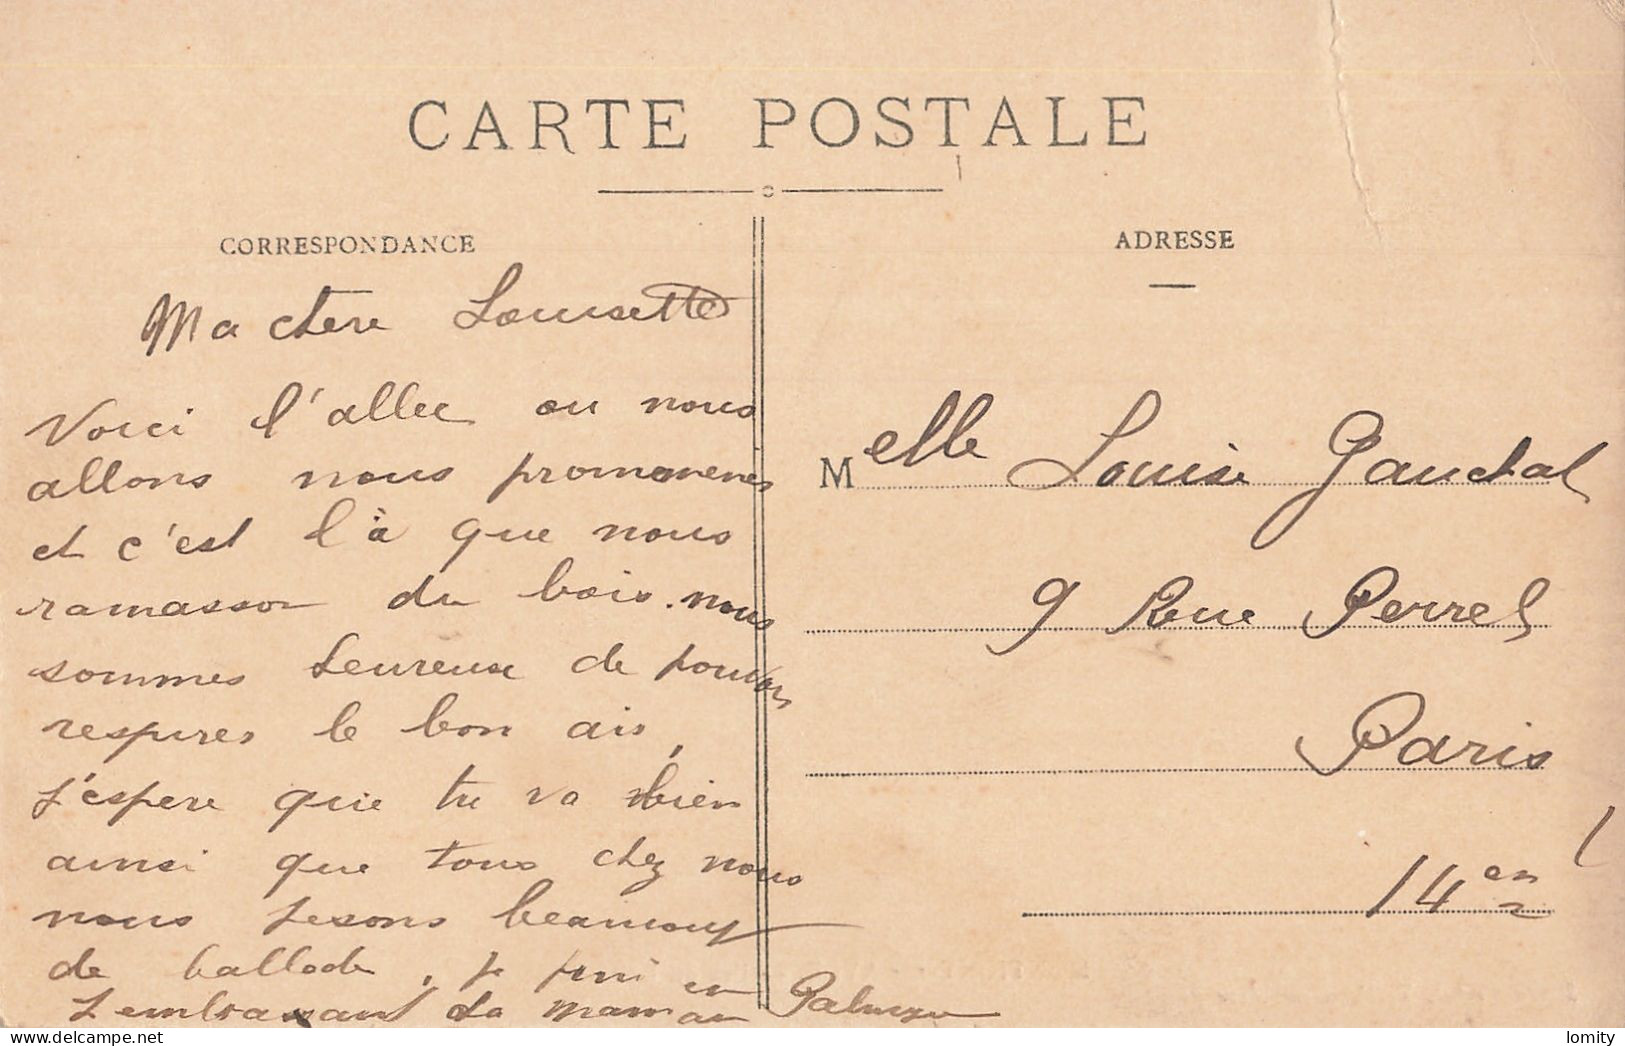 CARTE POSTALE
CORRESPONDANCE
Ma chere Lousette
Voici l'allee ou nous
allons nous promeneres
et c'est l'à que nous
ramasson du bois. nous
sommes heureuse de pouvoir
respires le bon air,
j'espere que tu va bien
ainsi que tous chez nous
nous fesons beaucoup
de ballade, je fini en
t'embrassant ta maman
ADRESSE
Melle Louise Gauchal
9 Rue Perrel
Paris
14en
delcampe.net
lomity